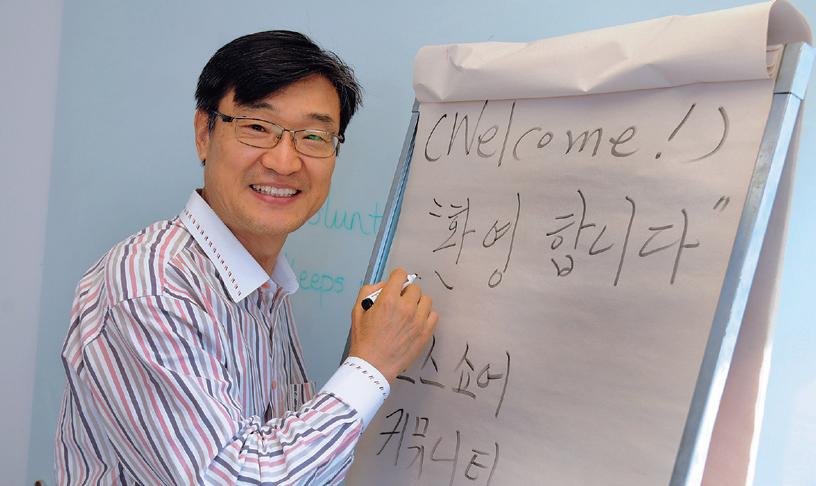 (Welcome!)
"환영 합니다"
스쇼어
커뮤니티
olunt
keeps